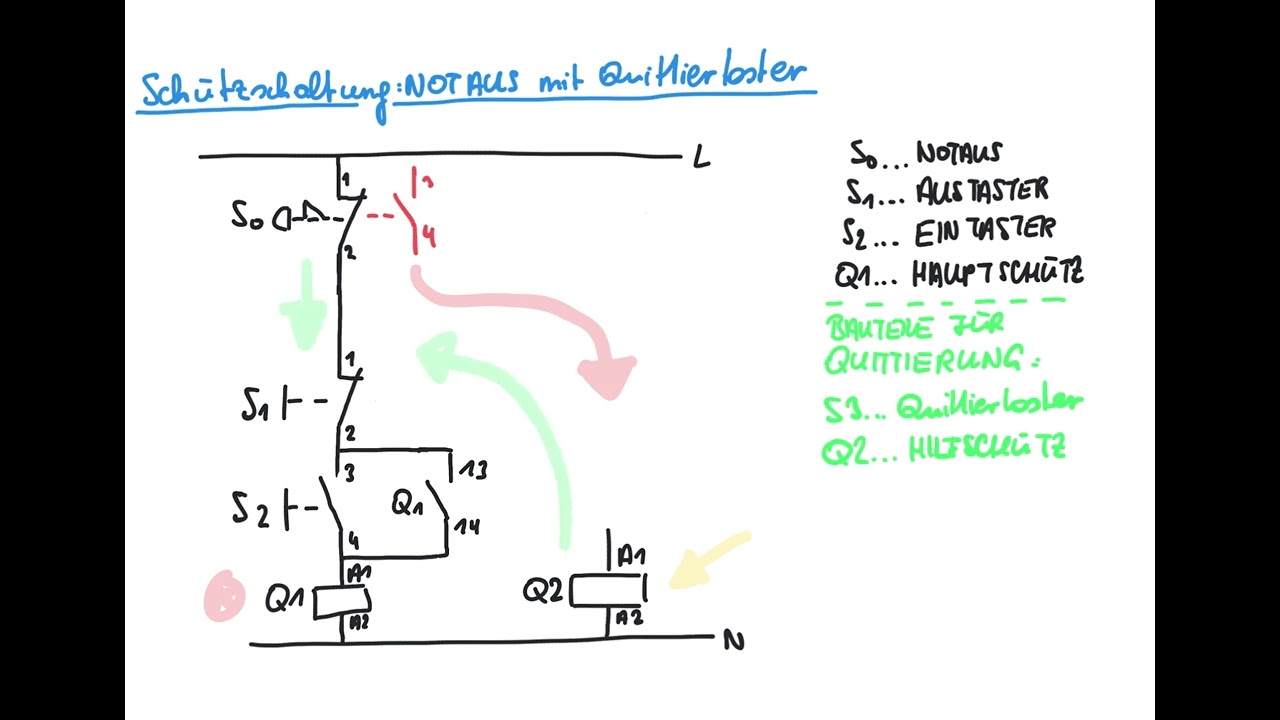 Schützschaltung: NOTAUS mit Quittiertaster
L
1
3
S0
4
2
1
S1
2
3
13
S2
Q1
14
4
A1
Q1
A2
A1
Q2
A2
N
S0... NOTAUS
S1... AUSTASTER
S2... EINTASTER
Q1... HAUPTSCHÜTZ
BAUTEILE FÜR
QUITTIERUNG:
S3... Quittiertaster
Q2... HILFSCHÜTZ